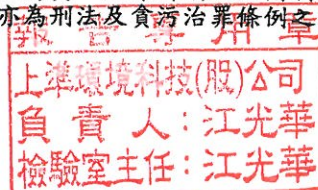 亦為刑法及貪污治罪條例之
報告專用章
上準環境科技(股)公司
負責人:江光華
檢驗室主任:江光華